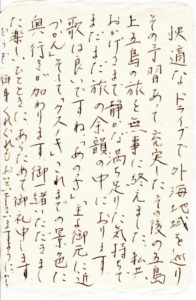 快適なドライブで外海地域を巡り
その予習あって充実した、その後の五島
上五島の旅を無事終えました。私共
おかげさまで静かな満ち足りた気持ちで
まだまだ旅の余韻の中におります。
歌は良いですね「あの子」主は御元に近
づかん、そして「クスノキ」これまでの景色に
奥行きが加わります。御一緒いただきまし
た楽しいひとときに、あらためて御礼申します。